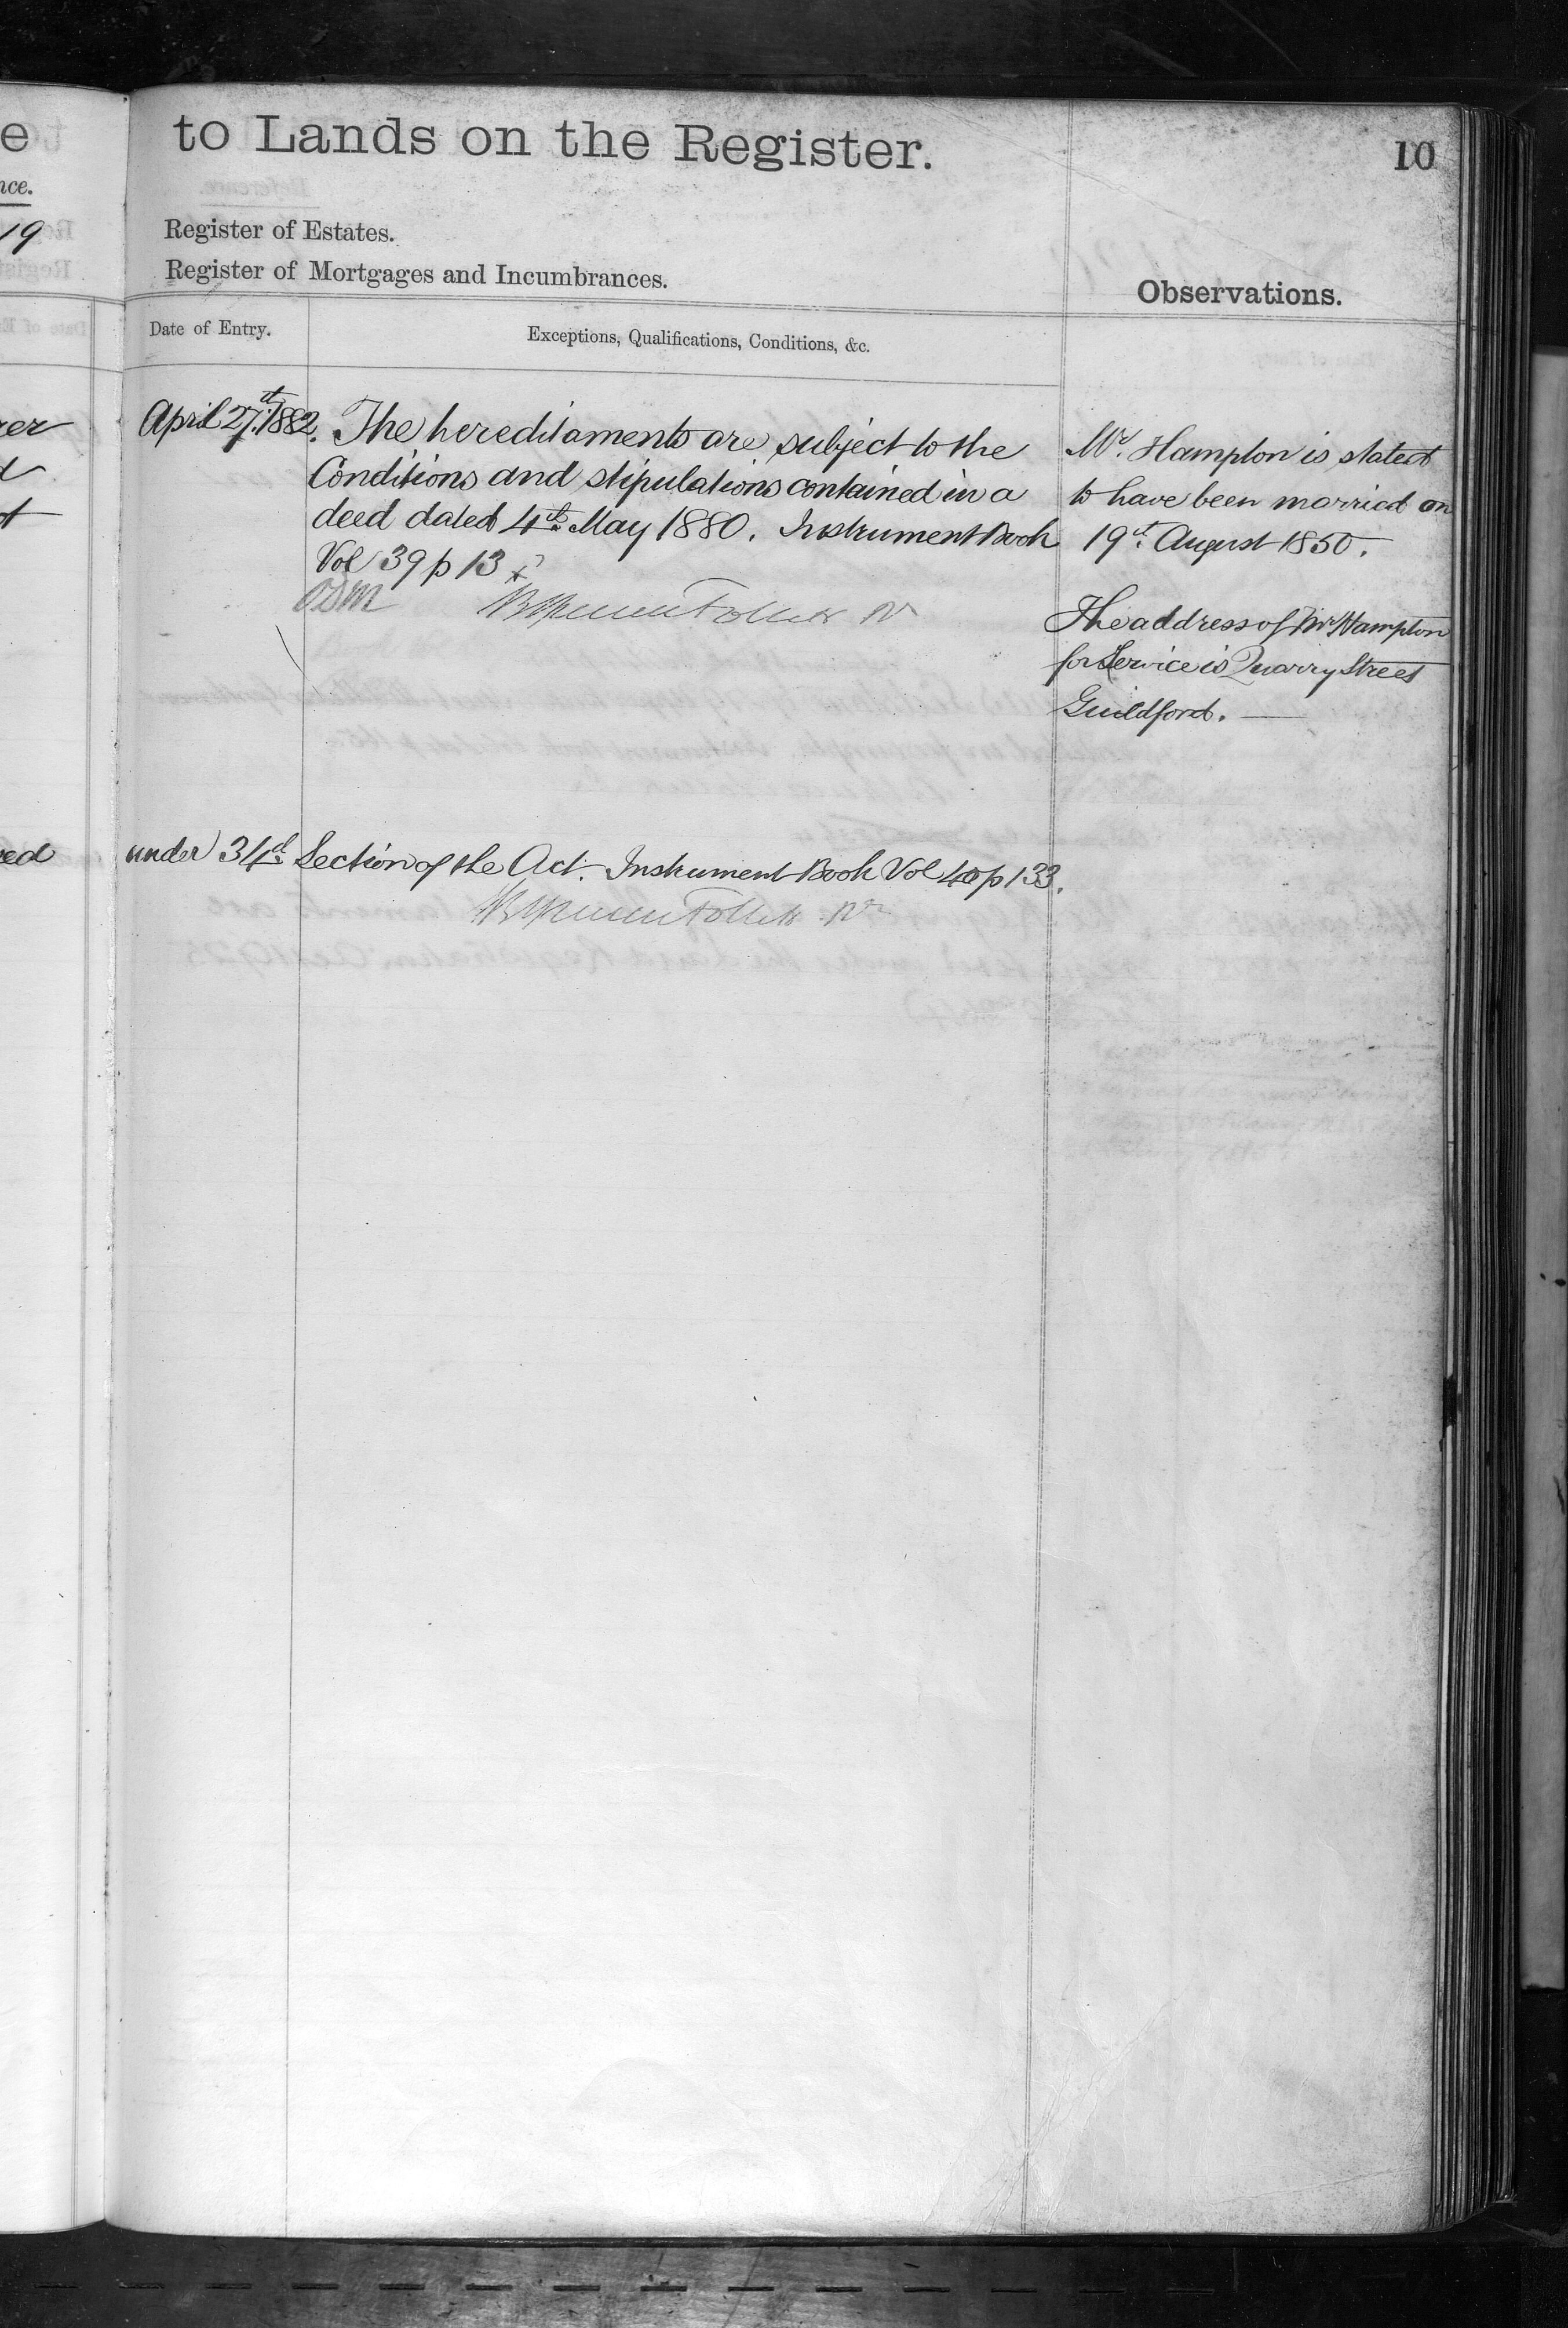 e
nce.
19
to Lands on the Register.
10
Register of Estates.
Register of Mortgages and Incumbrances.
Observations.
Date of Entry.
Exceptions, Qualifications, Conditions, &c.
April 27th. 1882.
The hereditaments are subject to the
Conditions and stipulations contained in a
deed dated 4th May 1880. Instrument Book
Vol 39 p 13
Mr. Hampton is stated
to have been married on
19th August 1850.
The address of Mr Hampton
for Service is Quarry Street
Guildford.
under 34th Section of the Act. Instrument Book Vol 40 p 133.